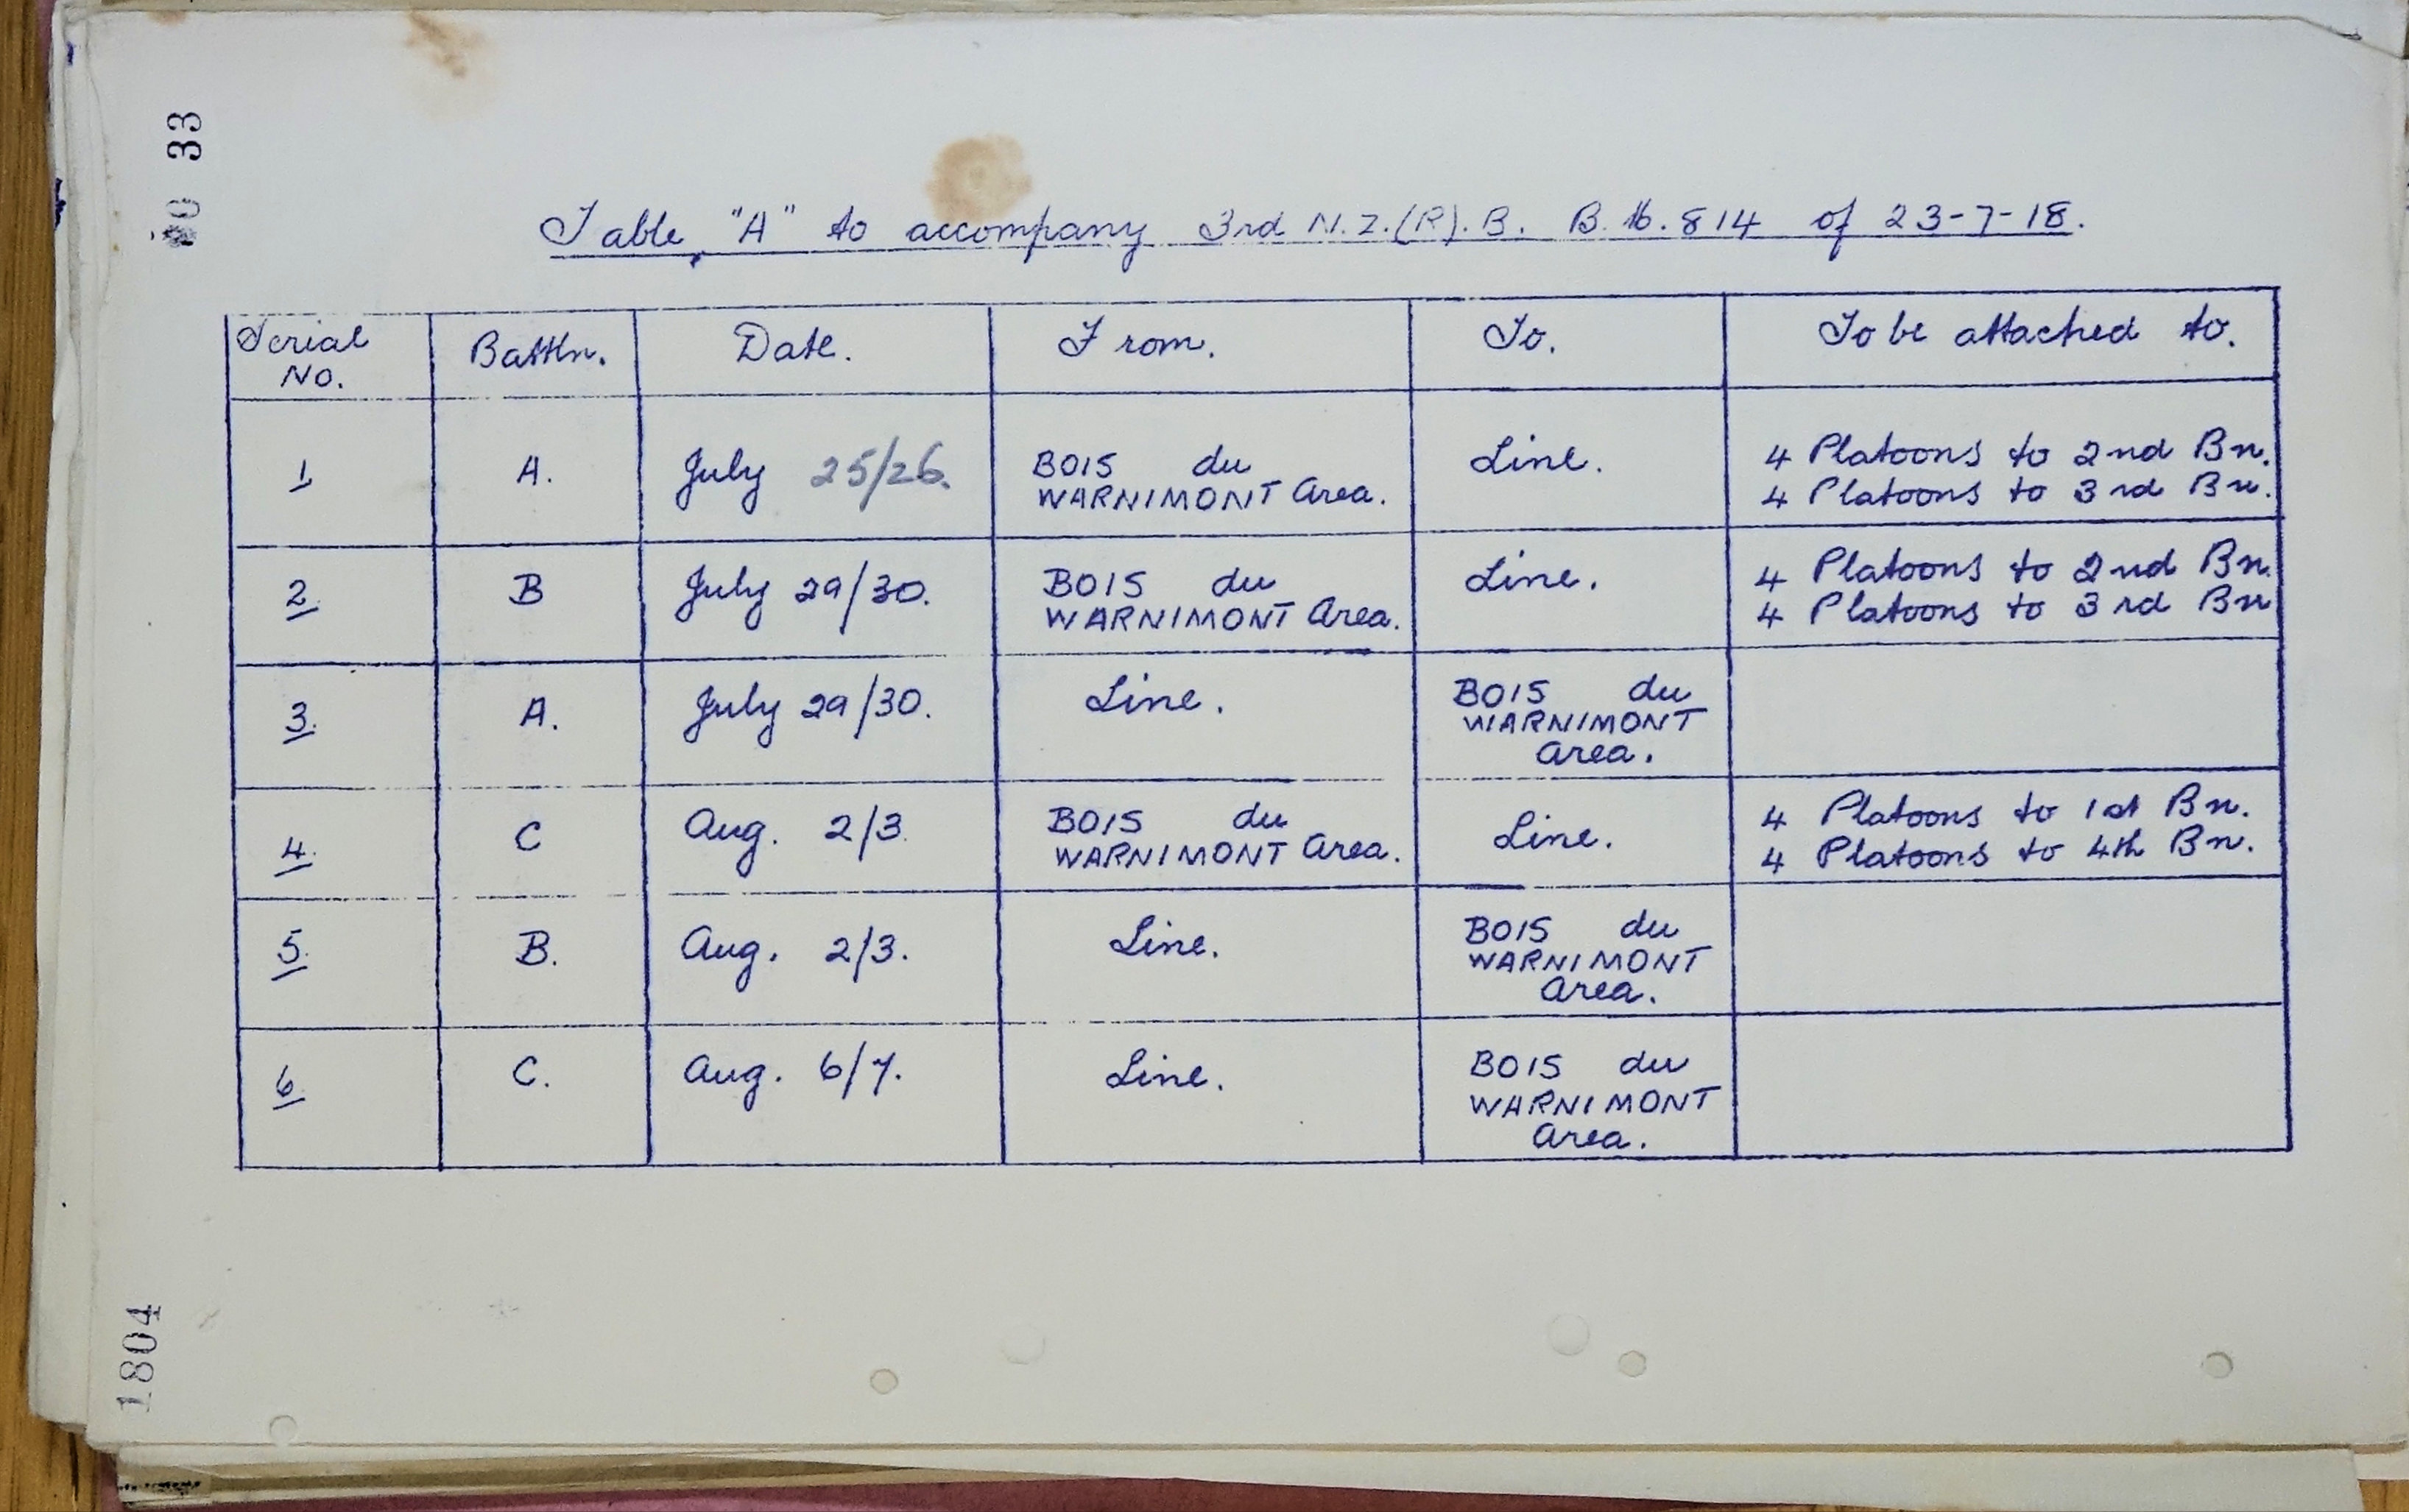 33
Table "A" to accompany 3rd N.Z.(R).B. B.M.814 of 23-7-18.
Serial No. Battln. Date. From. To. To be attached to.
1 A. July 25/26. BOIS du WARNIMONT Area. Line. 4 Platoons to 2nd Bn. 4 Platoons to 3rd Bn.
2. B July 29/30. BOIS du WARNIMONT Area. Line. 4 Platoons to 2nd Bn. 4 Platoons to 3rd Bn
3. A. July 29/30. Line. BOIS du WARNIMONT Area.
4. C Aug. 2/3. BOIS du WARNIMONT Area. Line. 4 Platoons to 1st Bn. 4 Platoons to 4th Bn.
5. B. Aug. 2/3. Line. BOIS du WARNIMONT Area.
6. C. Aug. 6/7. Line. BOIS du WARNIMONT Area.
1804